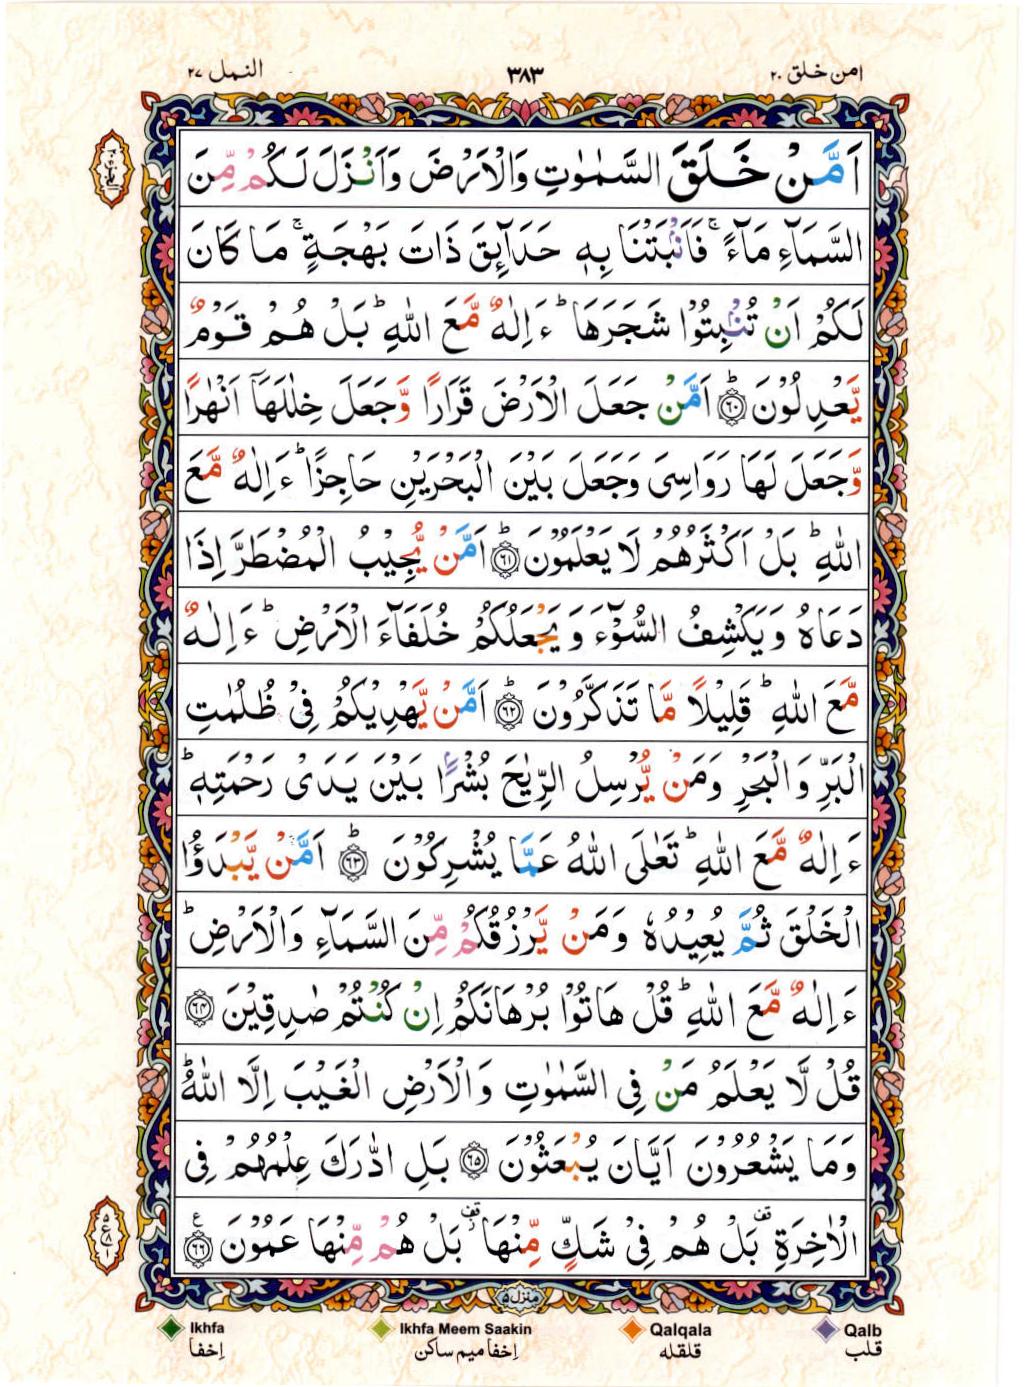 امن خلق ٢٠
٣٨٣
النمل ٢٧
اَمَّنْ خَلَقَ السَّمٰوٰتِ وَالْاَرْضَ وَاَنْزَلَ لَكُمْ مِّنَ
السَّمَآءِ مَآءً ۚ فَاَنْۢبَتْنَا بِهٖ حَدَآئِقَ ذَاتَ بَهْجَةٍ ۚ مَا كَانَ
لَكُمْ اَنْ تُنْۢبِتُوْا شَجَرَهَا ؕ ءَاِلٰهٌ مَّعَ اللّٰهِ ؕ بَلْ هُمْ قَوْمٌ
يَّعْدِلُوْنَ ؕ ﴿٦٠﴾ اَمَّنْ جَعَلَ الْاَرْضَ قَرَارًا وَّجَعَلَ خِلٰلَهَاۤ اَنْهٰرًا
وَّجَعَلَ لَهَا رَوَاسِیَ وَجَعَلَ بَيْنَ الْبَحْرَيْنِ حَاجِزًا ؕ ءَاِلٰهٌ مَّعَ
اللّٰهِ ؕ بَلْ اَكْثَرُهُمْ لَا يَعْلَمُوْنَ ؕ ﴿٦١﴾ اَمَّنْ يُّجِيْبُ الْمُضْطَرَّ اِذَا
دَعَاهُ وَيَكْشِفُ السُّوْٓءَ وَيَجْعَلُكُمْ خُلَفَآءَ الْاَرْضِ ؕ ءَاِلٰهٌ
مَّعَ اللّٰهِ ؕ قَلِيْلًا مَّا تَذَكَّرُوْنَ ؕ ﴿٦٢﴾ اَمَّنْ يَّهْدِيْكُمْ فِیْ ظُلُمٰتِ
الْبَرِّ وَالْبَحْرِ وَمَنْ يُّرْسِلُ الرِّيٰحَ بُشْرًۢا بَيْنَ يَدَیْ رَحْمَتِهٖ ؕ
ءَاِلٰهٌ مَّعَ اللّٰهِ ؕ تَعٰلَى اللّٰهُ عَمَّا يُشْرِكُوْنَ ؕ ﴿٦٣﴾ اَمَّنْ يَّبْدَؤُا
الْخَلْقَ ثُمَّ يُعِيْدُهٗ وَمَنْ يَّرْزُقُكُمْ مِّنَ السَّمَآءِ وَالْاَرْضِ ؕ
ءَاِلٰهٌ مَّعَ اللّٰهِ ؕ قُلْ هَاتُوْا بُرْهَانَكُمْ اِنْ كُنْتُمْ صٰدِقِيْنَ ﴿٦٤﴾
قُلْ لَّا يَعْلَمُ مَنْ فِی السَّمٰوٰتِ وَالْاَرْضِ الْغَيْبَ اِلَّا اللّٰهُ ؕ
وَمَا يَشْعُرُوْنَ اَيَّانَ يُبْعَثُوْنَ ﴿٦٥﴾ بَلِ ادّٰرَكَ عِلْمُهُمْ فِی
الْاٰخِرَةِ ۫ بَلْ هُمْ فِیْ شَكٍّ مِّنْهَا ۫ بَلْ هُمْ مِّنْهَا عَمُوْنَ ﴿٦٦﴾
منزل ٥
Ikhfa
Ikhfa Meem Saakin
Qalqala
Qalb
اِخفا
اِخفا میم ساکن
قلقله
قلب